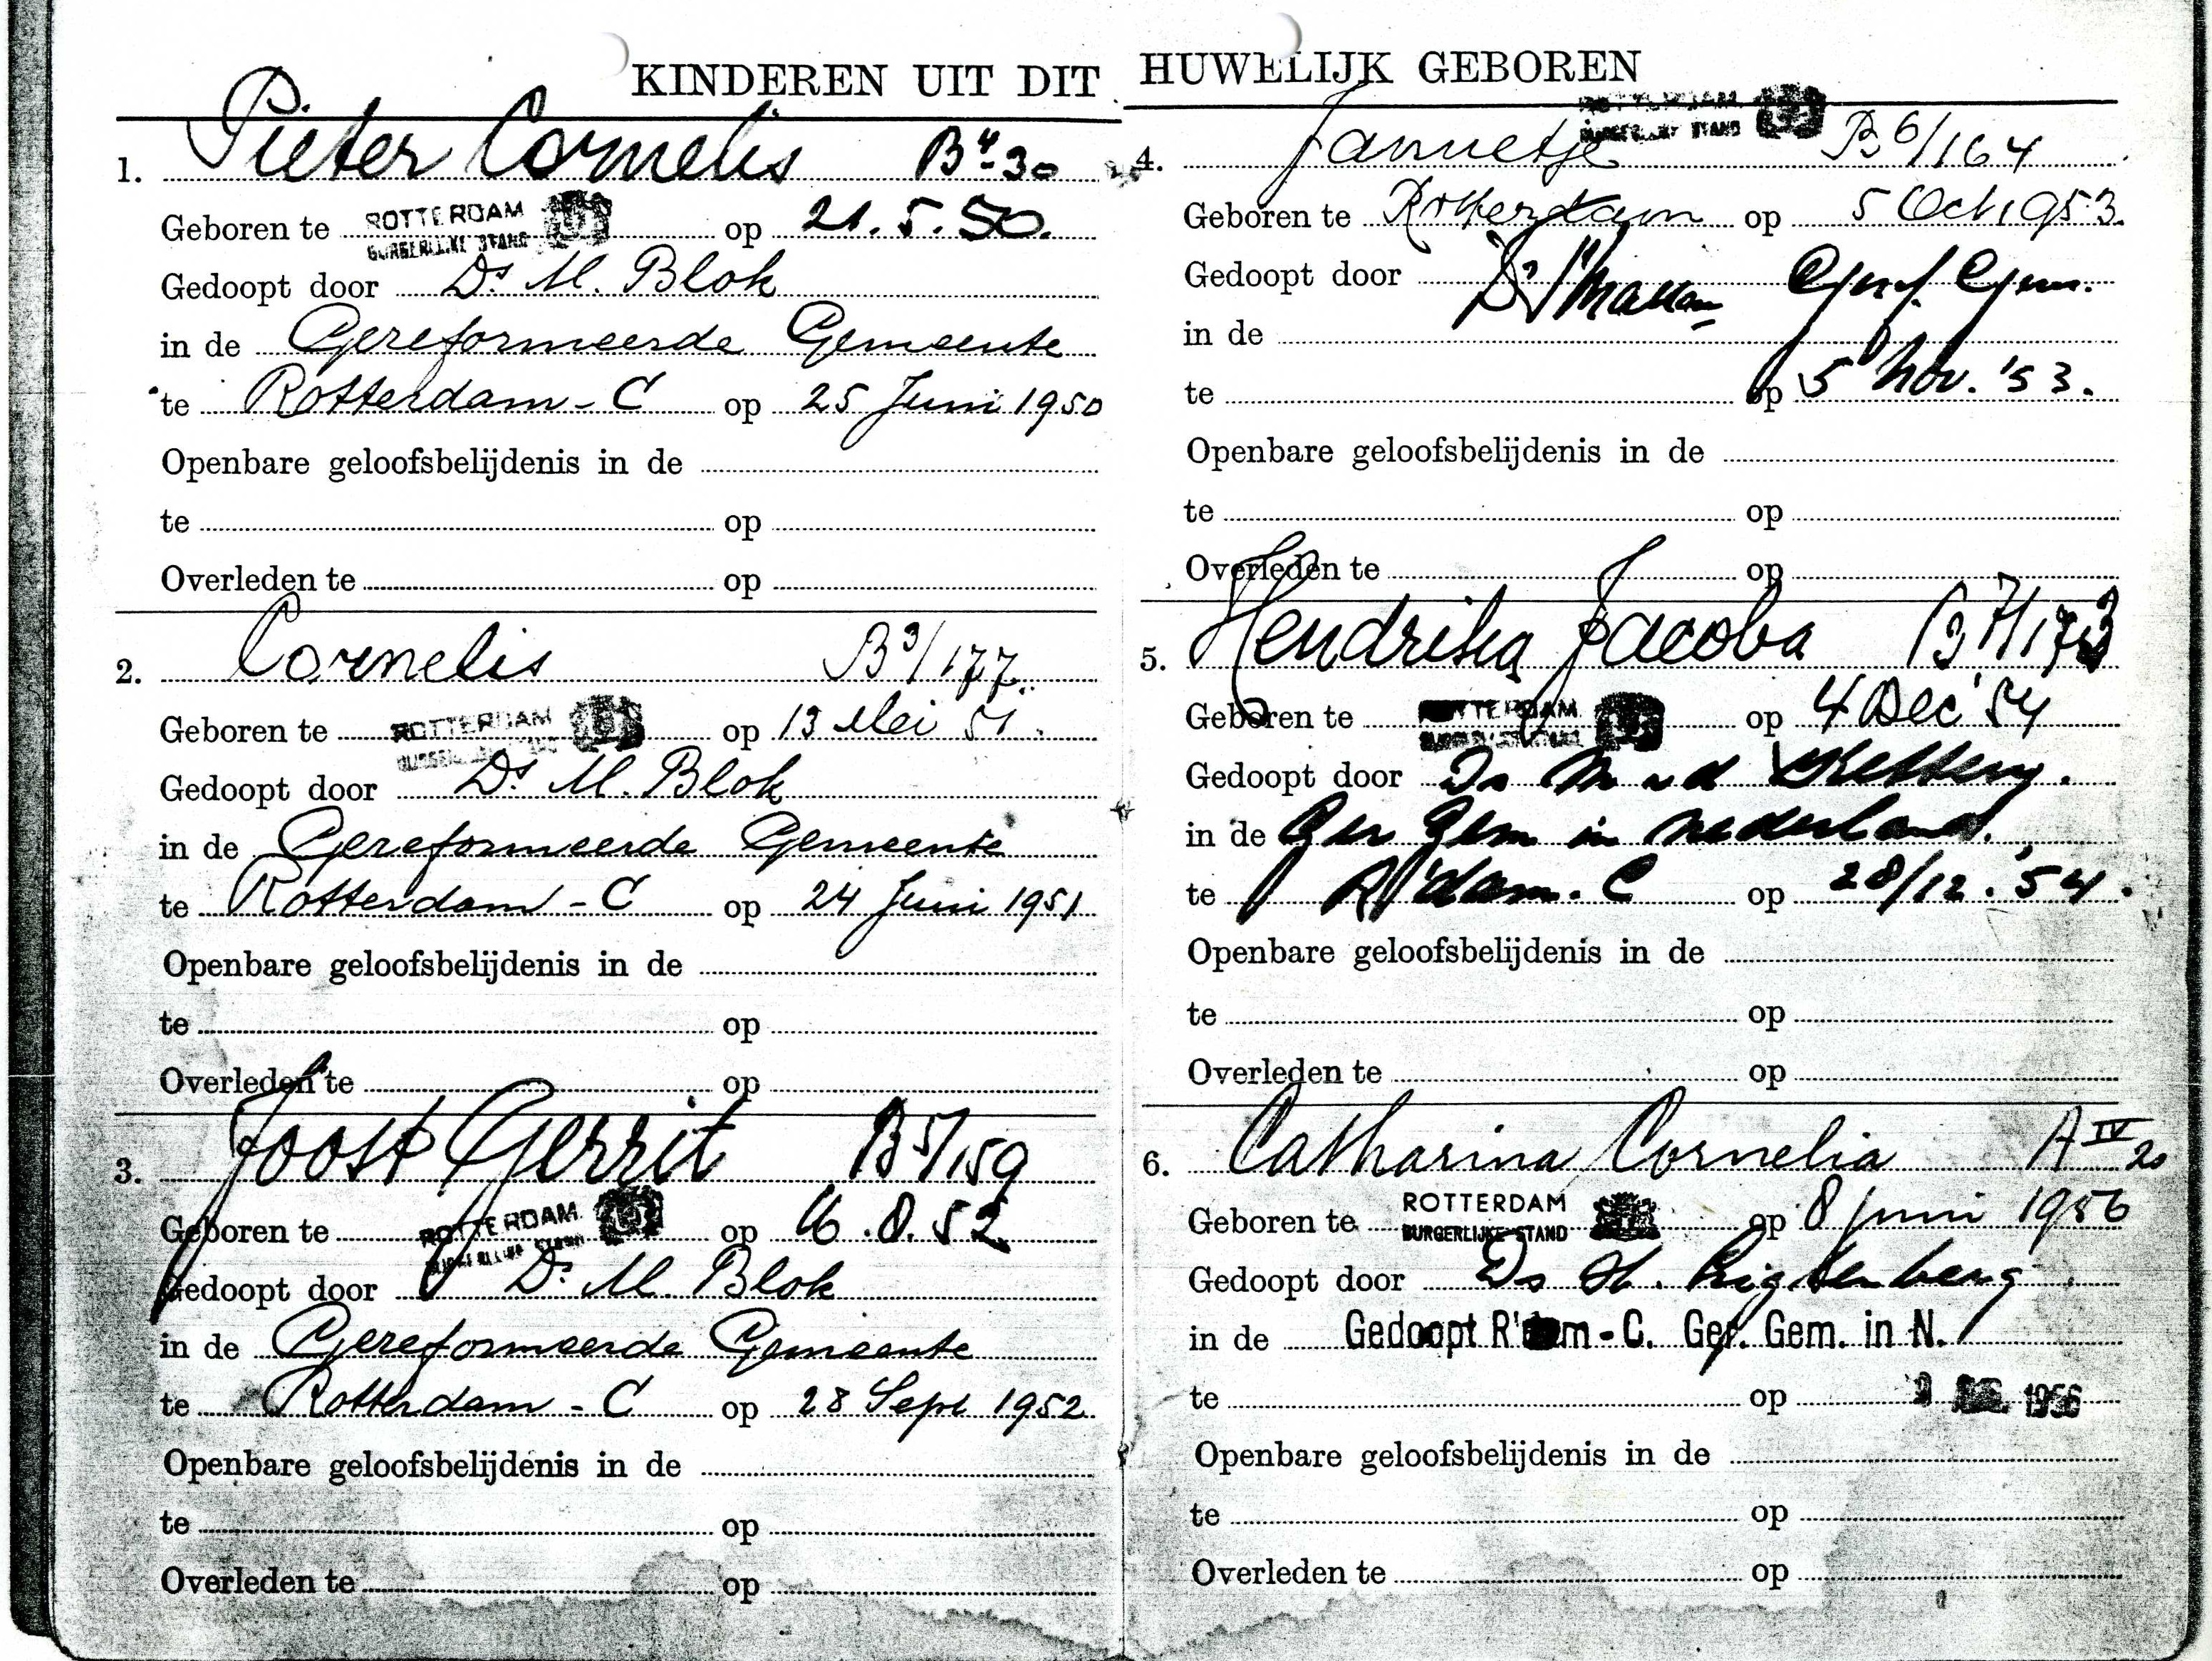 KINDEREN UIT DIT HUWELIJK GEBOREN
1. Pieter Cornelis B4-30
Geboren te ROTTERDAM op 21.5.50.
BURGERLIJKE STAND
Gedoopt door Ds M. Blok
in de Gereformeerde Gemeente
te Rotterdam-C op 25 Juni 1950
Openbare geloofsbelijdenis in de
te op
Overleden te op
2. Cornelis B3/177.
Geboren te ROTTERDAM op 13 Mei 51.
BURGERLIJKE STAND
Gedoopt door Ds M. Blok
in de Gereformeerde Gemeente
te Rotterdam-C op 24 Juni 1951
Openbare geloofsbelijdenis in de
te op
Overleden te op
3. Joost Gerrit B5/159
Geboren te ROTTERDAM op 16.8.52
BURGERLIJKE STAND
Gedoopt door Ds M. Blok
in de Gereformeerde Gemeente
te Rotterdam-C op 28 Sept 1952
Openbare geloofsbelijdenis in de
te op
Overleden te op
ROTTERDAM
BURGERLIJKE STAND
4. Jannetje B6/164
Geboren te Rotterdam op 5 Oct 1953.
Gedoopt door Ds Geref. Gem.
in de
te op 5 Nov. '53.
Openbare geloofsbelijdenis in de
te op
Overleden te op
5. Hendrika Jacoba B7/173
Geboren te ROTTERDAM op 4 Dec '54
BURGERLIJKE STAND
Gedoopt door Ds M v d Ketterij.
in de Ger Gem in Nederland.
te R'dam-C op 28/12.'54.
Openbare geloofsbelijdenis in de
te op
Overleden te op
6. Catharina Cornelia A IV 20
Geboren te ROTTERDAM op 8 juni 1956
BURGERLIJKE STAND
Gedoopt door Ds H. Ligtenberg
in de Gedoopt R'dam-C. Ger. Gem. in N.
te op 1956
Openbare geloofsbelijdenis in de
te op
Overleden te op